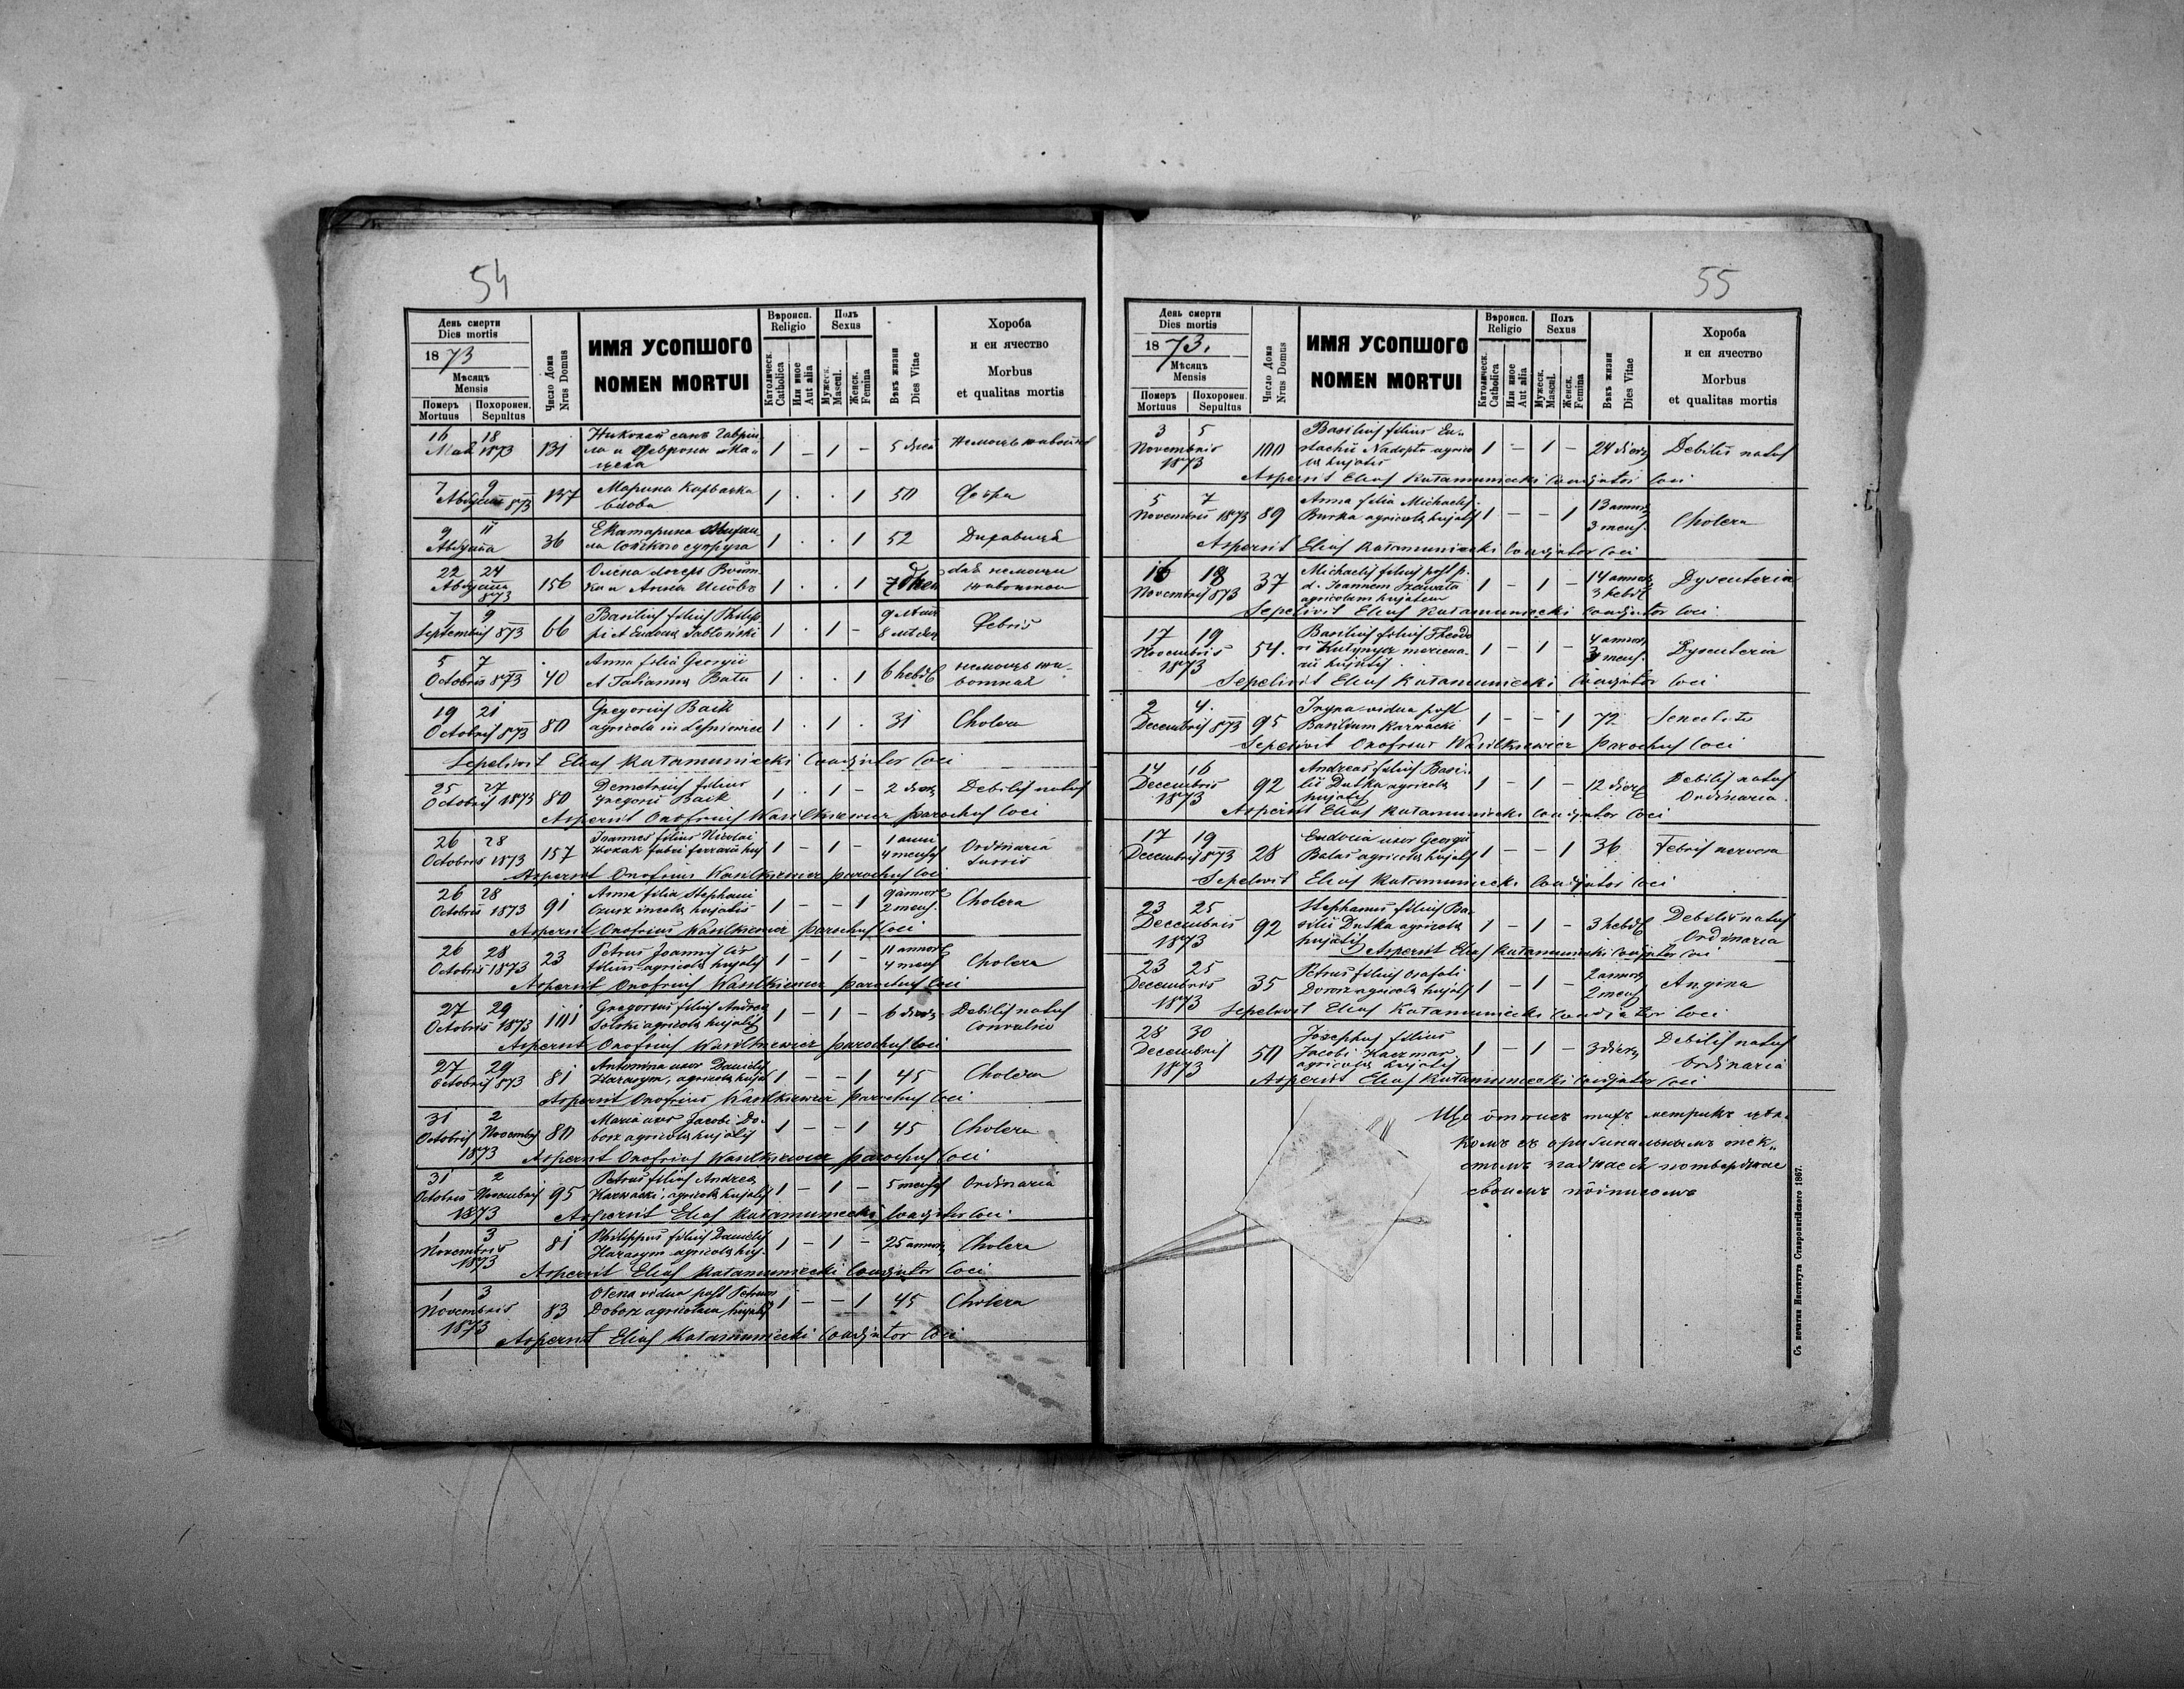 54
День смерти
Dies mortis
1873
Мѣсяць
Mensis
Померъ
Mortuus
Похоронен.
Sepultus
Число Дома
Nrus Domus
ИМЯ УСОПШОГО
NOMEN MORTUI
Вѣроисп.
Religio
Католическ.
Catholica
Или иное
Aut alia
Полъ
Sexus
Мужеск.
Mascul.
Женск.
Femina
Вѣкъ жизни
Dies Vitae
Хороба
и еи ячество
Morbus
et qualitas mortis
16 18
Мая 1873 131 Николай сынъ Гаврiи-
ла и Феврона
1 – 1 – 5 дней
7 9
Августа 873 137 Марина Карвацка
вдова
1 . . 1 50
9 11
Августа 36 Екатарина
супруга
1 . . 1 52
22 24
Августа 873 156 Олена дочерь
и Анна
1 . . 1 7
7 9
Septembris 873 66 Basilius filius Philip-
pi et Eudocia Jabłoński
1 . 1 – 8 Febris
5 7
Octobris 873 40 Anna filia Georgii
et Tatianna Batu
1 . . 1 6 hebd
19 21
Octobris 873 80 Gregorius Baik
agricola in Leśniowice
1 . 1 . 31 Cholera
Sepelivit Elias Kutamuniecki Coadjutor loci
25 27
Octobris 1873 80 Demetrius filius
Gregorii Baik
1 . 1 – 2 dierz Debilis natus
Aspersit Onofrius Wasilkiewicz parochus loci
26 28
Octobris 1873 157 Joannes filius Nicolai
Kozak fabri ferrarii huj
1 – 1 – 1 anni
4 menses Ordinaria
tussis
Aspersit Onofrius Wasilkiewicz parochus loci
26 28
Octobris 1873 91 Anna filia Stephani
Czusz incola hujatis
1 – – 1 9 annorz
2 mens. Cholera
Aspersit Onofrius Wasilkiewicz parochus loci
26 28
Octobris 1873 23 Petrus Joannis Lis
filius agricola hujatis
1 – 1 – 11 annorz
4 mens Cholera
Aspersit Onofrius Wasilkiewicz parochus loci
27 29
Octobris 1873 101 Gregorius filius Andrea
Solski agricola hujatis
1 – 1 – 6 dierz Debilis natus
Convulsio
Aspersit Onofrius Wasilkiewicz parochus loci
27 29
Octobris 873 81 Antonina uxor Danielis
Harasym, agricola hujat
1 – – 1 45 Cholera
Aspersit Onofrius Wasilkiewicz parochus loci
31 2
Octobris Novembris 80 Maria uxor Jacobi Do-
1873 bosz agricola hujatis
1 – – 1 45 Cholera
Aspersit Onofrius Wasilkiewicz parochus loci
31 2
Octobris Novembris 95 Petrus filius Andrea
1873 Karwacki, agricola hujatis
1 – 1 – 5 menses Ordinaria
Aspersit Elias Kutamuniecki Coadjutor loci
1 3
Novembris 81 Philippus filius Danielis
1873 Harasym agricola huj.
1 – 1 – 25 annorz Cholera
Aspersit Elias Kutamuniecki Coadjutor loci
1 3
Novembris 83 Olena vidua post Petrum
1873 Dobosz agricolam hujatis
1 – – 1 45 Cholera
Aspersit Elias Kutamuniecki Coadjutor loci
55
День смерти
Dies mortis
1873.
Мѣсяць
Mensis
Померъ
Mortuus
Похоронен.
Sepultus
Число Дома
Nrus Domus
ИМЯ УСОПШОГО
NOMEN MORTUI
Вѣроисп.
Religio
Католическ.
Catholica
Или иное
Aut alia
Полъ
Sexus
Мужеск.
Mascul.
Женск.
Femina
Вѣкъ жизни
Dies Vitae
Хороба
и еи ячество
Morbus
et qualitas mortis
3 5
Novembris 100 Basilius filius Eu-
1873 stachii Nadopta agrico
la hujatis
1 – 1 – 24 dierz Debilis natus
Aspersit Elias Kutamuniecki Coadjutor loci
5 7
Novembris 1873 89 Anna filia Michaelis
Burka agricola hujatis
1 – – 1 13 annorz
3 mens. Cholera
Aspersit Elias Kutamuniecki Coadjutor loci
16 18
Novembris 873 37 Michaelis filius post p.
d. Joannem Szawała
agricolam hujatem
1 – 1 – 14 annorz
3 hebd Dysenteria
Sepelivit Elias Kutamuniecki Coadjutor loci
17 19
Novembris 54. Basilius filius Theodo
1873 ri Hulynycz mercena-
rii hujatis
1 – 1 – 4 annorz
3 mens. Dysenteria
Sepelivit Elias Kutamuniecki Coadjutor loci
2 4.
Decembris 873 95 Iryna vidua post
Basilium Karwacki
1 – – 1 72 Senectute
Sepelivit Onofrius Wasilkiewicz parochus loci
14 16
Decembris 92 Andreas filius Basi-
1873 lii Dutka agricola
hujatis
1 – 1 – 12 dierz Debilis natus
Ordinaria
Aspersit Elias Kutamuniecki Coadjutor loci
17 19
Decembris 873 28 Eudocia uxor Georgii
Balas agricola hujatis
1 – – 1 36 Febris nervosa
Sepelivit Elias Kutamuniecki Coadjutor loci
23 25
Decembris 92 Stephanus filius Ba-
1873 silii Dutka agricola
hujatis
1 – 1 – 3 hebd Debilis natus
Ordinaria
Aspersit Elias Kutamuniecki Coadjutor loci
23 25
Decembris 35 Petrus filius Osafati
1873 Dorosz agricola hujatis
1 – 1 – 2 annorz
2 mens Angina
Sepelivit Elias Kutamuniecki Coadjutor loci
28 30
Decembris 50 Josephus filius
1873 Jacobi Kaczmar
agricola hujatis
1 – 1 – 3 dierz Debilis natus
Ordinaria
Aspersit Elias Kutamuniecki Coadjutor loci
Що отписъ тихъ метрикъ цѣл-
комъ съ оригинальнымъ тек-
стомъ згаджаеся потверджае
своимъ
Съ печатни Института Ставропигійского 1867.